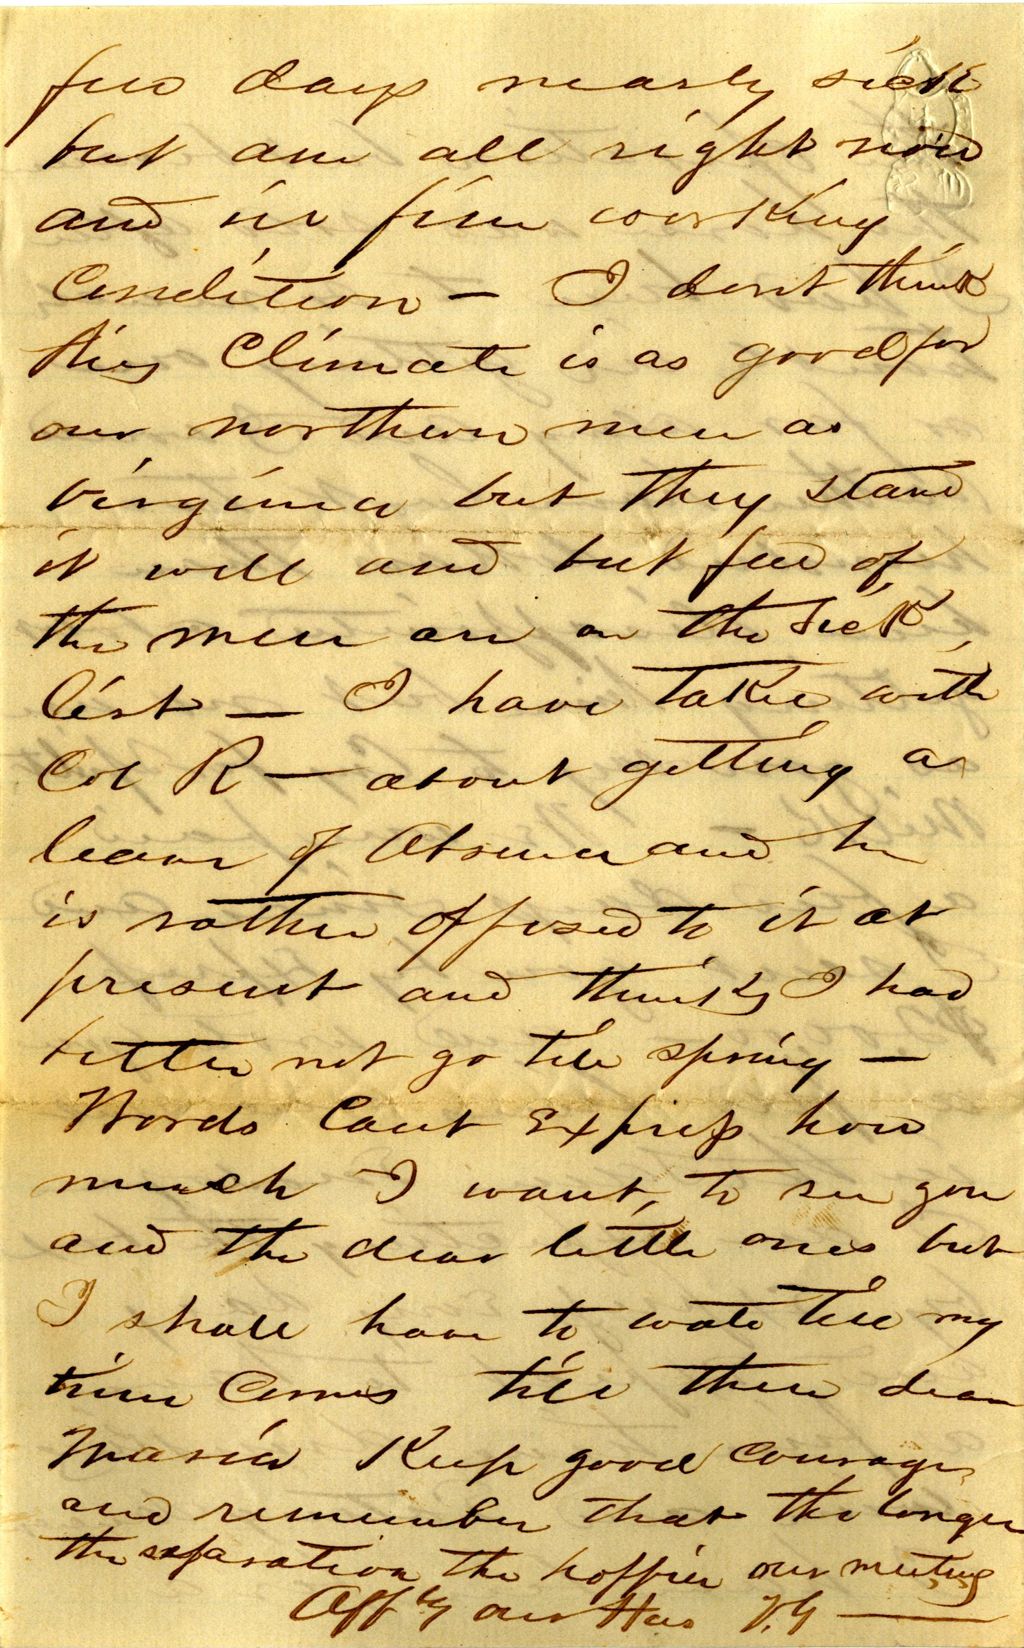 few days nearly sick
but am all right now
and in fine working
Condition — I dont think
this Climate is as good for
our northern men as
virginia but they stand
it well and but few of
the men are on the Sick
list — I have talke with
Col R — about getting a
leave of Absence and he
is rather opposed to it at
present and thinks I had
better not go till spring —
Words Cant Express how
much I want, to see you
and the dear little ones but
I shall have to wate till my
time Comes till then dear
Maria Keep good courage
and remember that the longer
the separation the happier our meeting
Affly our Hus